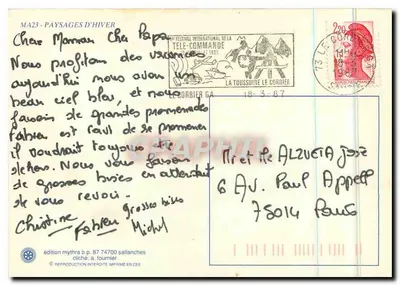 MA23 - PAYSAGES D'HIVER
Chere Maman Cher Papa
Nous profitons des vacances
aujourd'hui nous avons un
beau ciel bleu, et nous
faisons de grandes promenades
Fabien est ravi de se promener
il voudrait toujours être
dehors. Nous vous faisons
de grosses bises en attendant
de vous revoir.
grosses bises
Christine Fabien Michel
edition mythra b.p. 87 74700 sallanches
cliché: a. fournier
© REPRODUCTION INTERDITE IMPRIME EN CEE
FESTIVAL INTERNATIONAL DE LA
TELE-COMMANDE
LA TOUSSUIRE LE CORBIER
LE CORBIER GA
18-3-87
2,20
73 LE CORBIER
Mr et Me ALZUETA José
6 Av. Paul Appell
75014 Paris